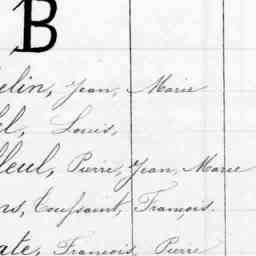 B
elin, Jean, Marie
el, Louis,
lleul, Pierre, Jean, Marie
ns, Toussaint, François.
ate, François, Pierre